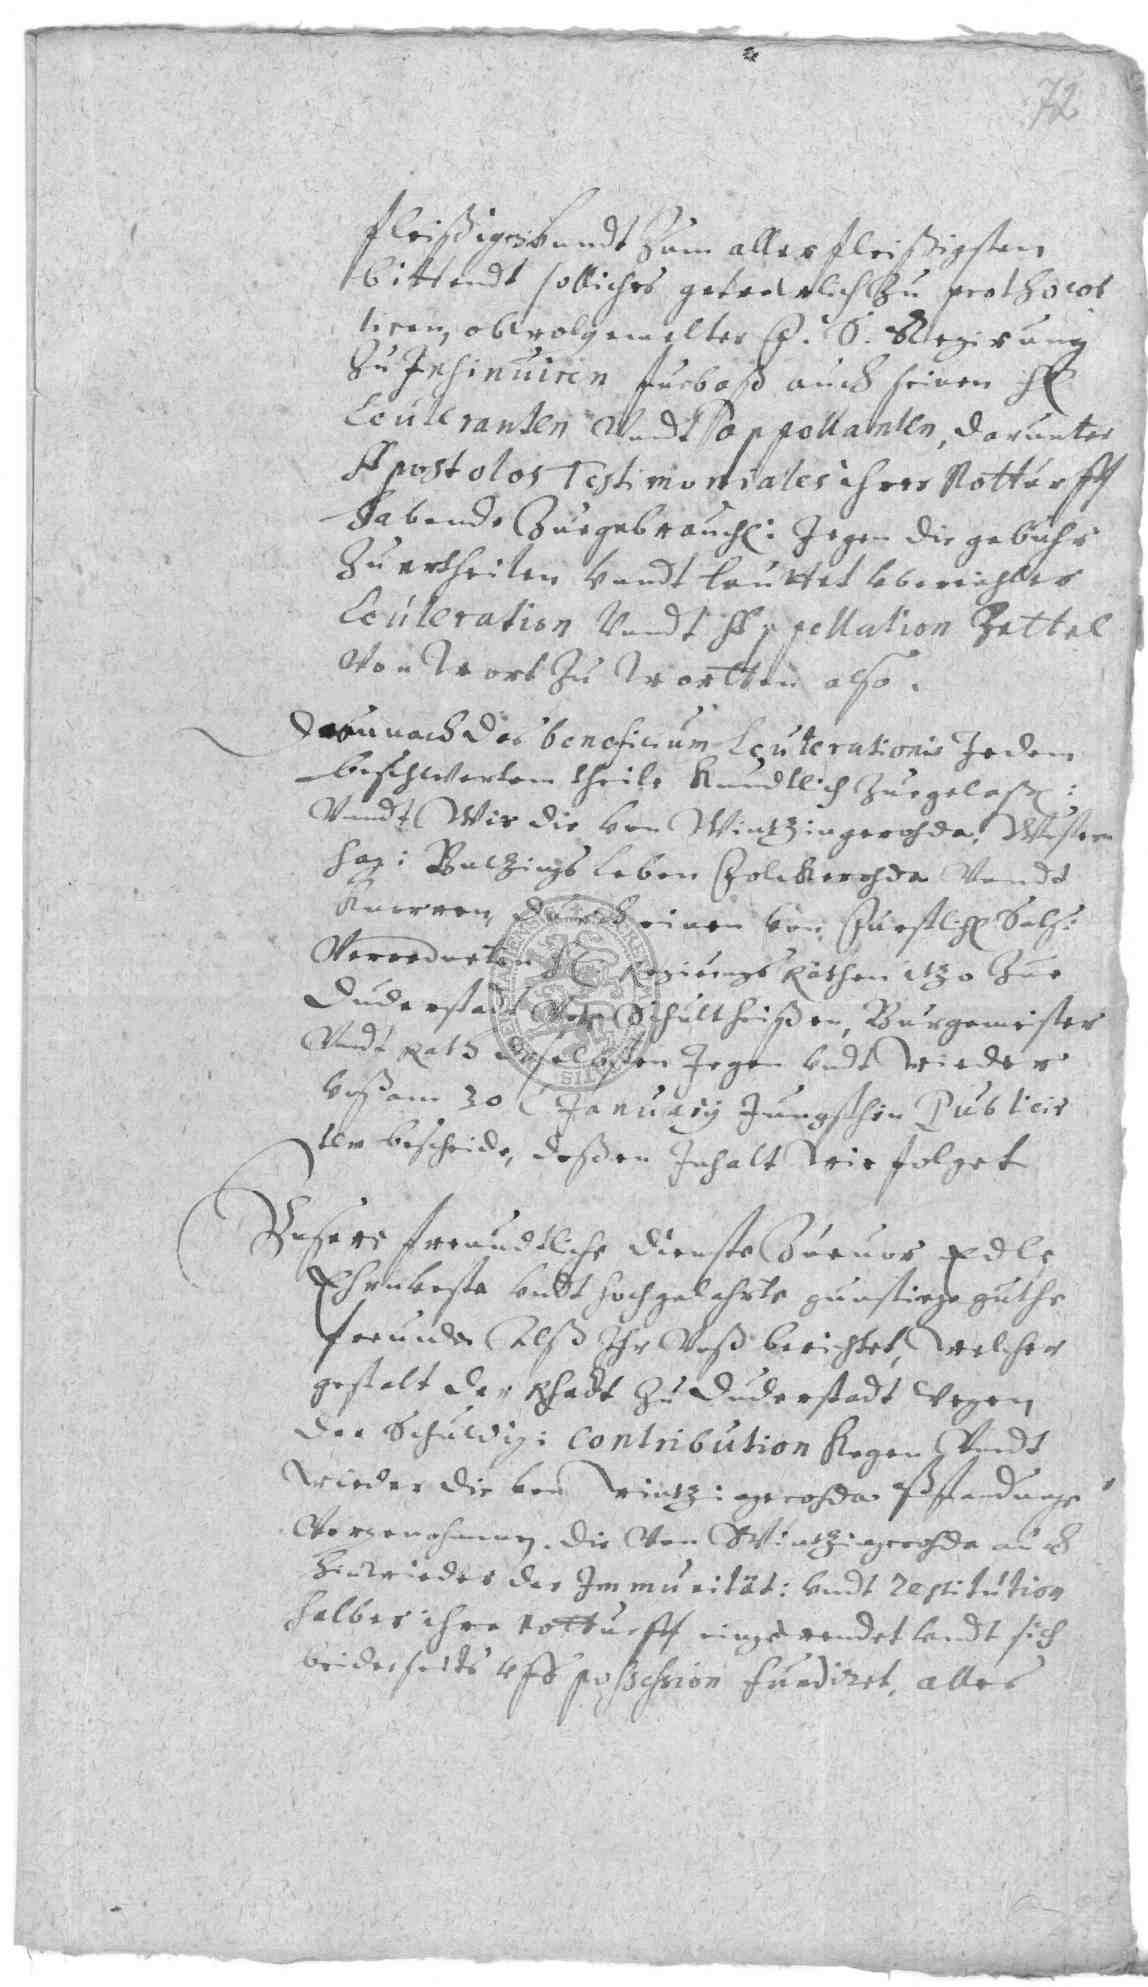 72
fleißiges vundt Zum aller fleißigsten
bittendt solliches getreulich Zu prothocol
liren, obwolgemelter F. S. Regirung
Zu Insinuiren furbaß auch seinen
Leuteranten Vndt appellanten, darunter
Apostolos Testimoniales ihrer Notturfft
habende Zuegebrauch: Jegen die gebuhr
Zuertheilen vundt lauttet berichter
Leuteration Vundt Appellation Zettel
Von Wort Zu Wortten also.
Demnach das beneficium Leuterationis Jedem
beschwertem theile Kundtlich Zuegelaß:
Vundt Wir die von Wintzingeroda, Western
hag: Bultzingsleben Volckeroda Vundt
Knorren, durch einen von Furstlich Sachs:
Verordneten Regirungs Räthen itzo Zue
Duderstadt Schultheißen, Burgemeister
Vndt Rath daselbsten Jegen vndt wieder
vnß am 30 January Jungsthin Publicir
ten bescheide, deßen Inhalt wie folget
Vnsere freundtliche dienste Zuuor Edle
Ehrnveste vndt hochgelahrte gunstige guthe
freunde Alß Ihr Vnß berichtet, welcher
gestalt der Rhadt Zu Duderstadt wegen
der Schuldig: Contribution Kegen Vndt
wieder die von Wintzingeroda Pfandunge
Vorgenohmen, die Von Wintzingeroda auch
hinwieder der Immunität: vndt restitution
halber ihre notturfft eingewendet vndt sich
beiderseits vff poßeßion fundiret, alles